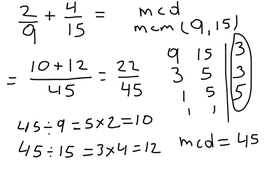 2/9 + 4/15 =
= 10+12/45 = 22/45
45÷9=5×2=10
45÷15=3×4=12
mcd
mcm(9,15)
9 15 | 3
3 5 | 3
1 5 | 5
1 1
mcd=45